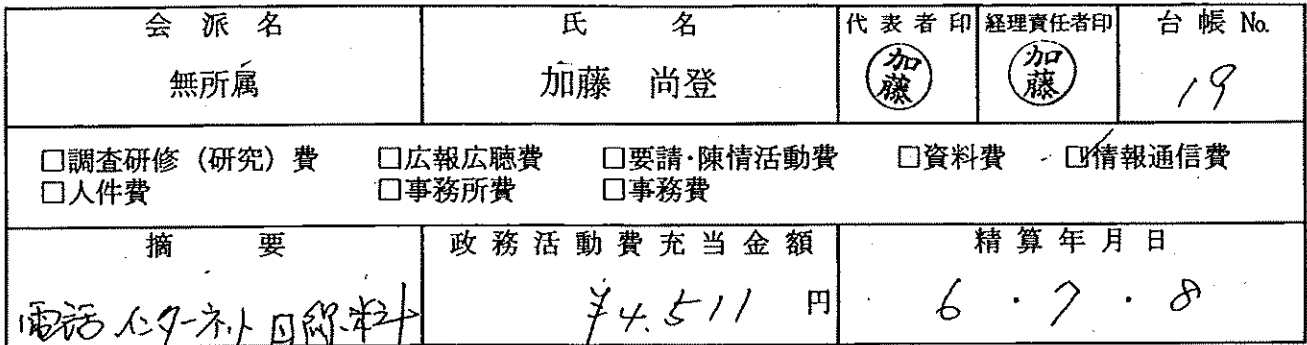 会派名 氏名 代表者印 経理責任者印 台帳No.
無所属 加藤 尚登 加藤 加藤 19
□調査研修（研究）費 □広報広聴費 □要請・陳情活動費 □資料費 ☑情報通信費
□人件費 □事務所費 □事務費
摘要 政務活動費充当金額 精算年月日
電話 インターネット 回線料 ¥4.511 円 6 . 7 . 8